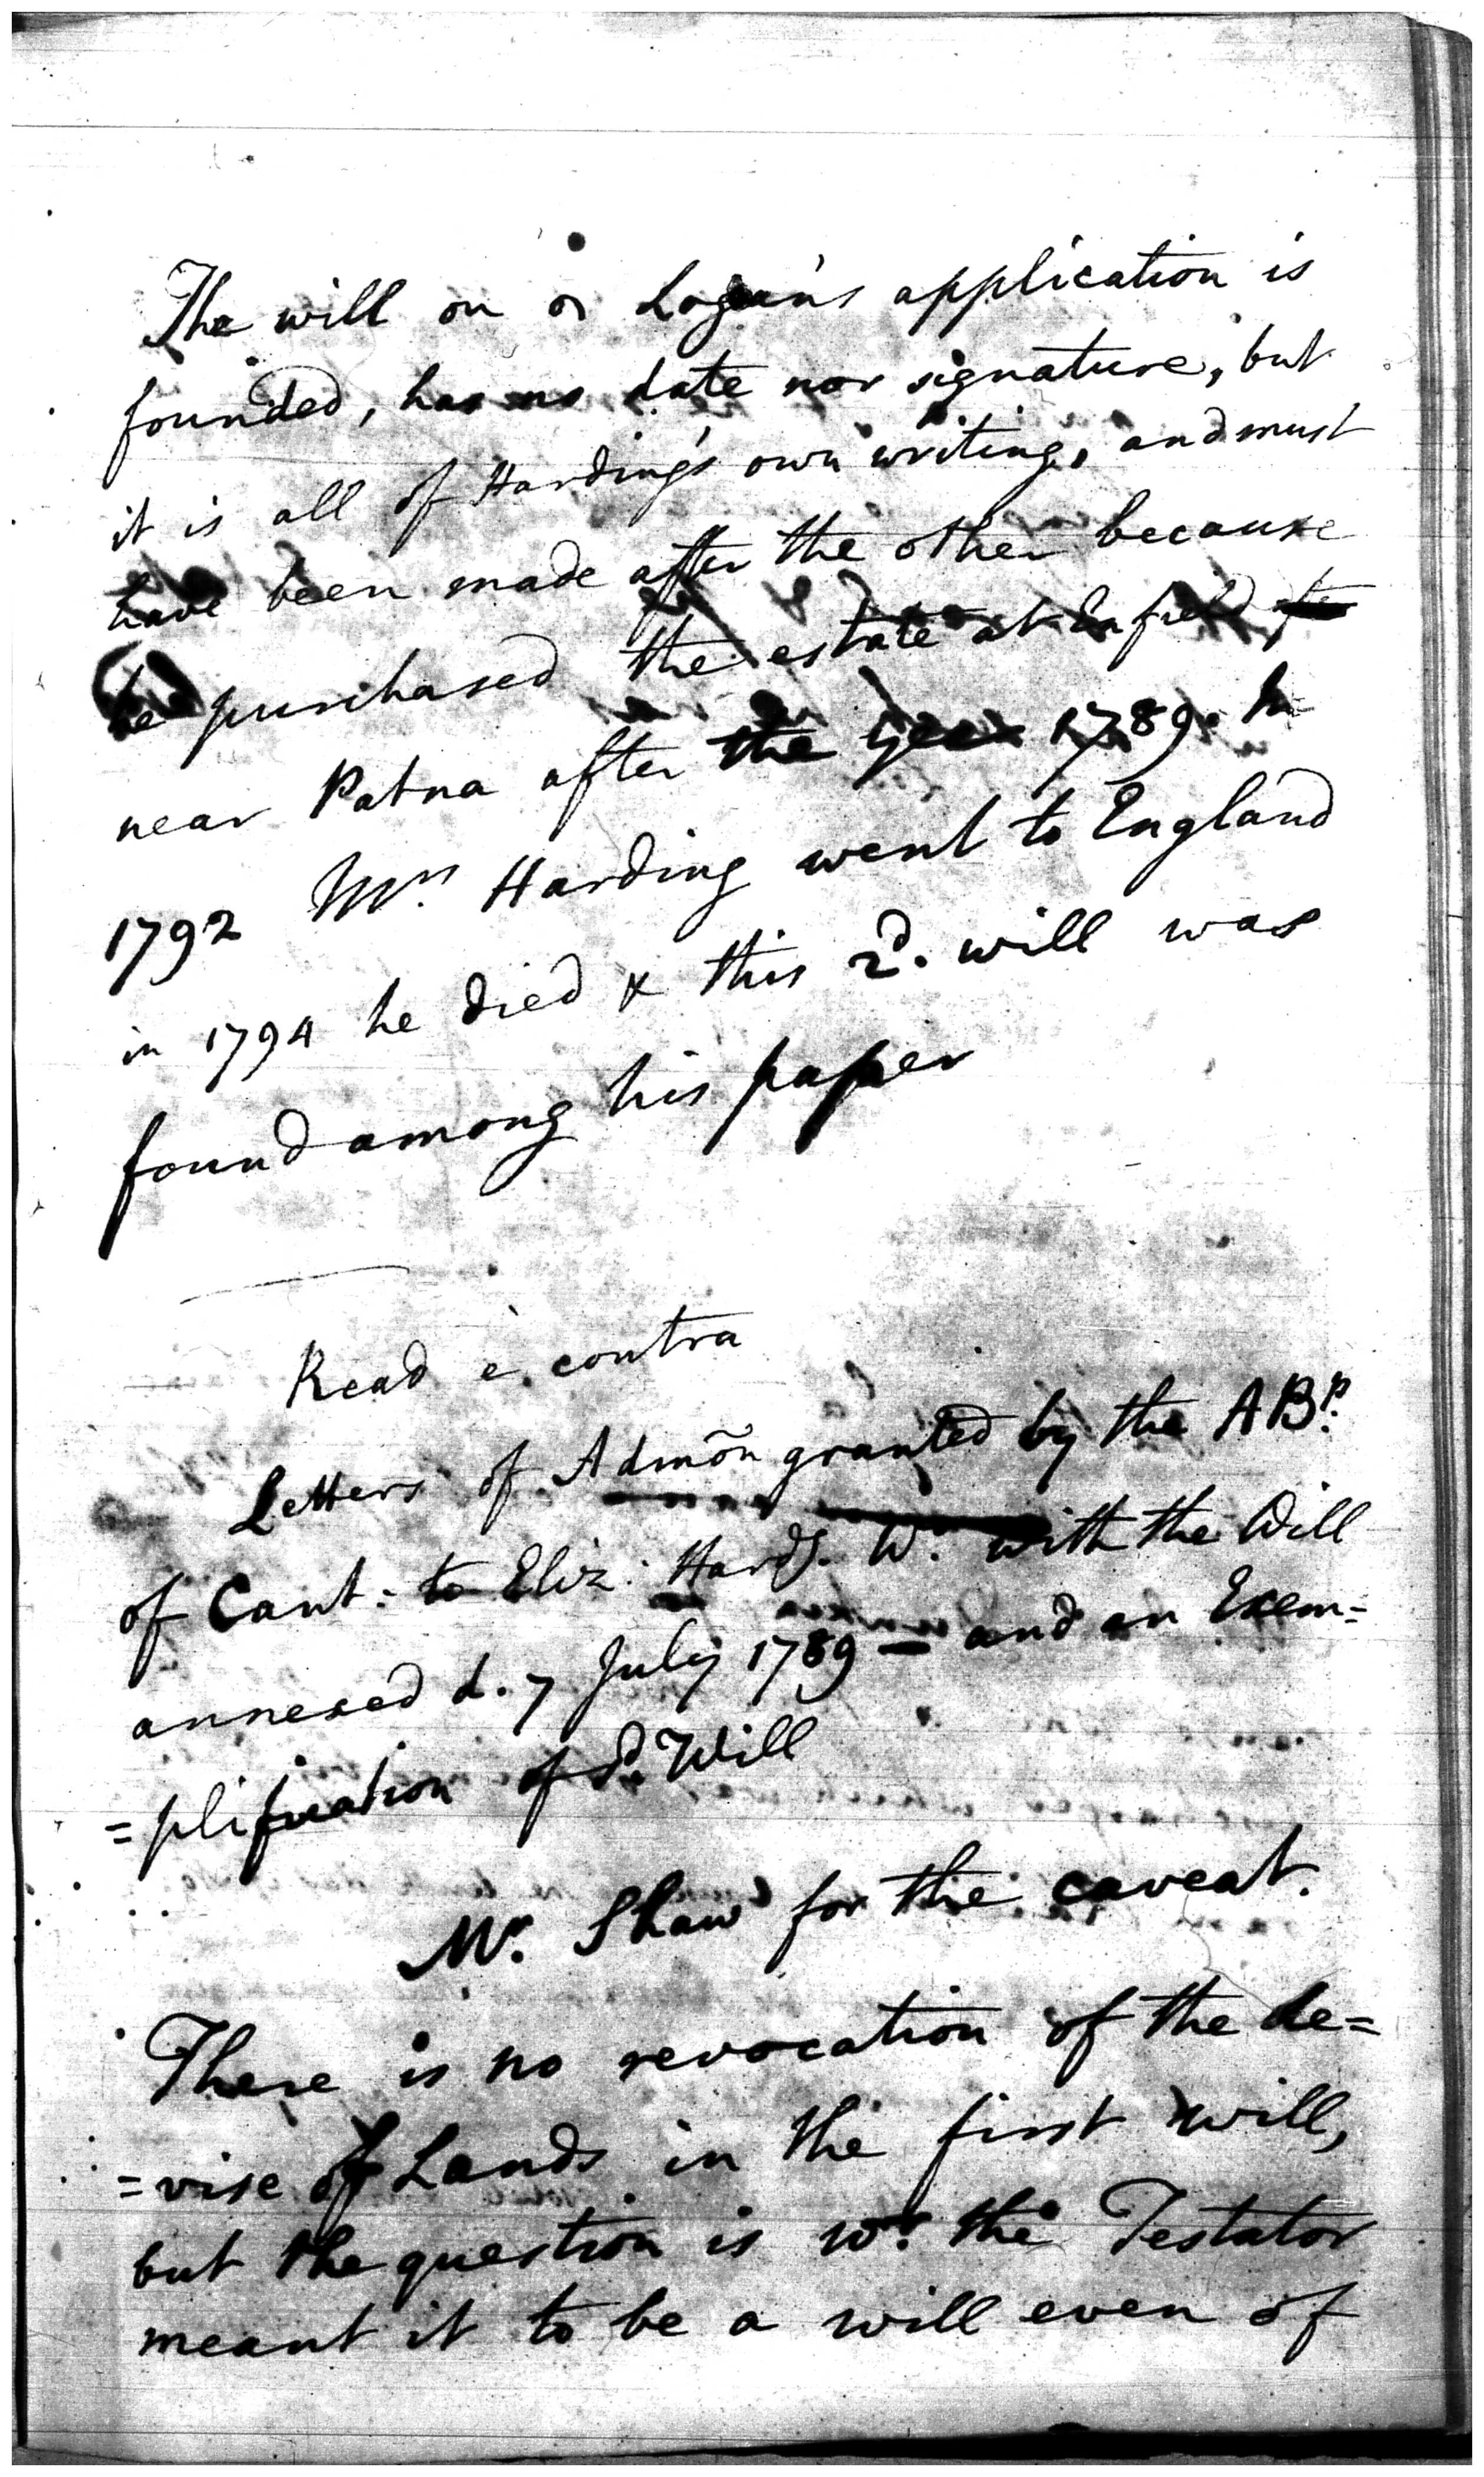 The will on or Logan's application is
founded, has no date nor signature, but
it is all of Harding's own writing, and must
have been made after the other because
he purchased the estate at Enfield
near Patna after the year 1789. In
1792 Mrs Harding went to England
in 1794 he died & this 2d. will was
found among his paper
Read è contra
Letters of Admõn granted by the ABp.
of Cant: to Eliz: Hardg. W. with the Will
annexed d. 7 July 1789 — and an Exem=
=plification of sd. Will
Mr. Shaw for the caveat.
There is no revocation of the de=
=vise of Lands in the first will,
but the question is wr. the Testator
meant it to be a will even of